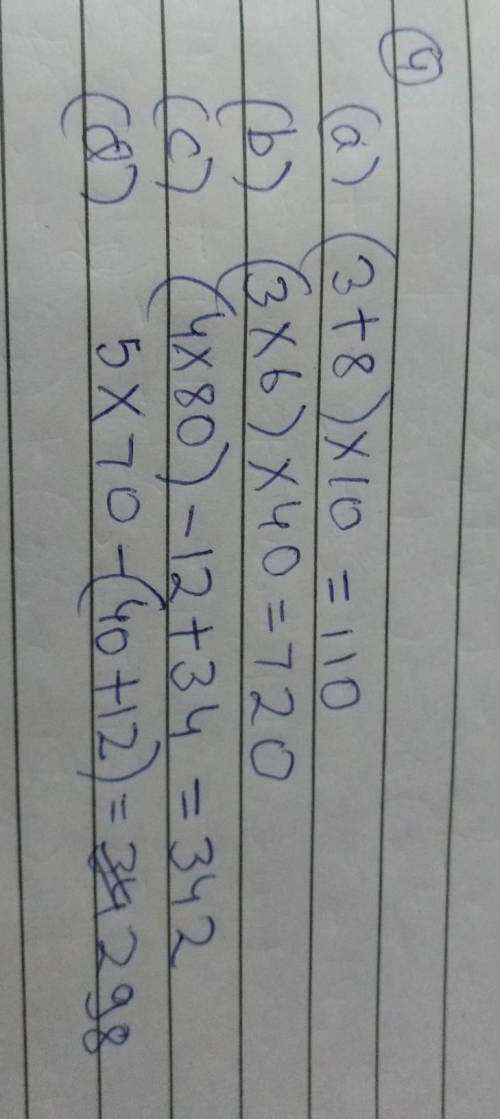 (4)
(a) (3+8)×10 = 110
(b) (3×6)×40=720
(c) (4×80)-12+34 = 342
(d) 5×70-(40+12)= 298